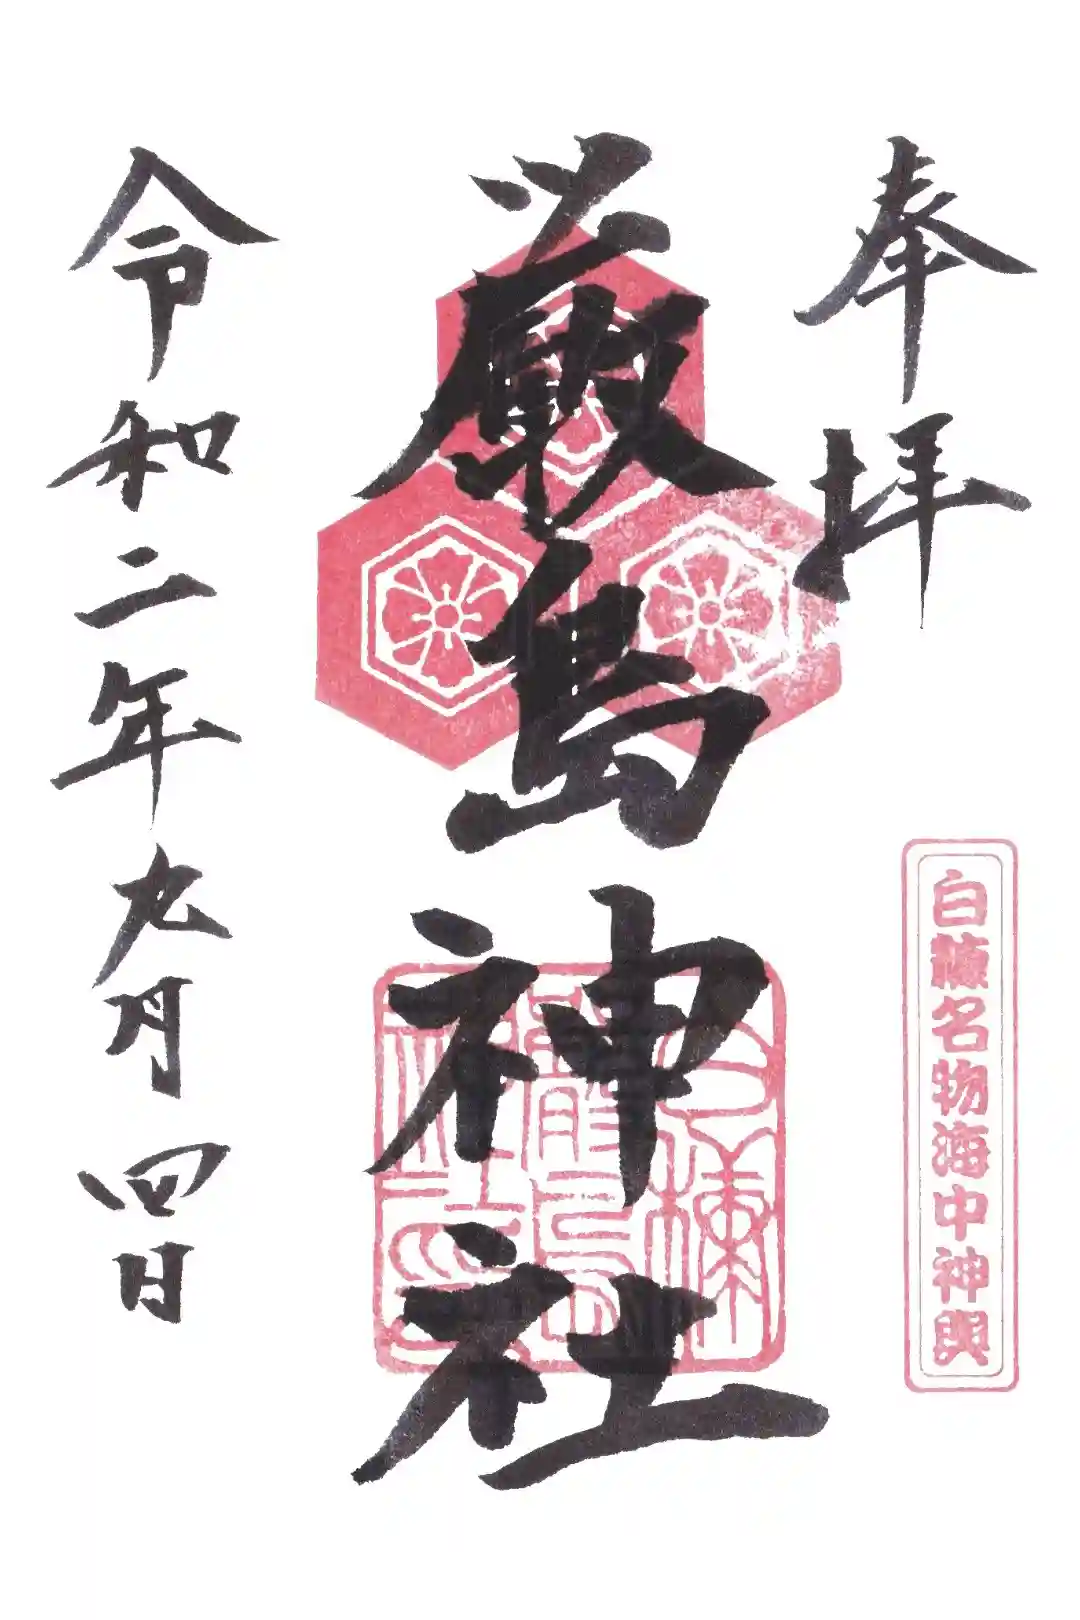 奉拝
白糠名物海中神輿
厳島神社
令和二年九月四日